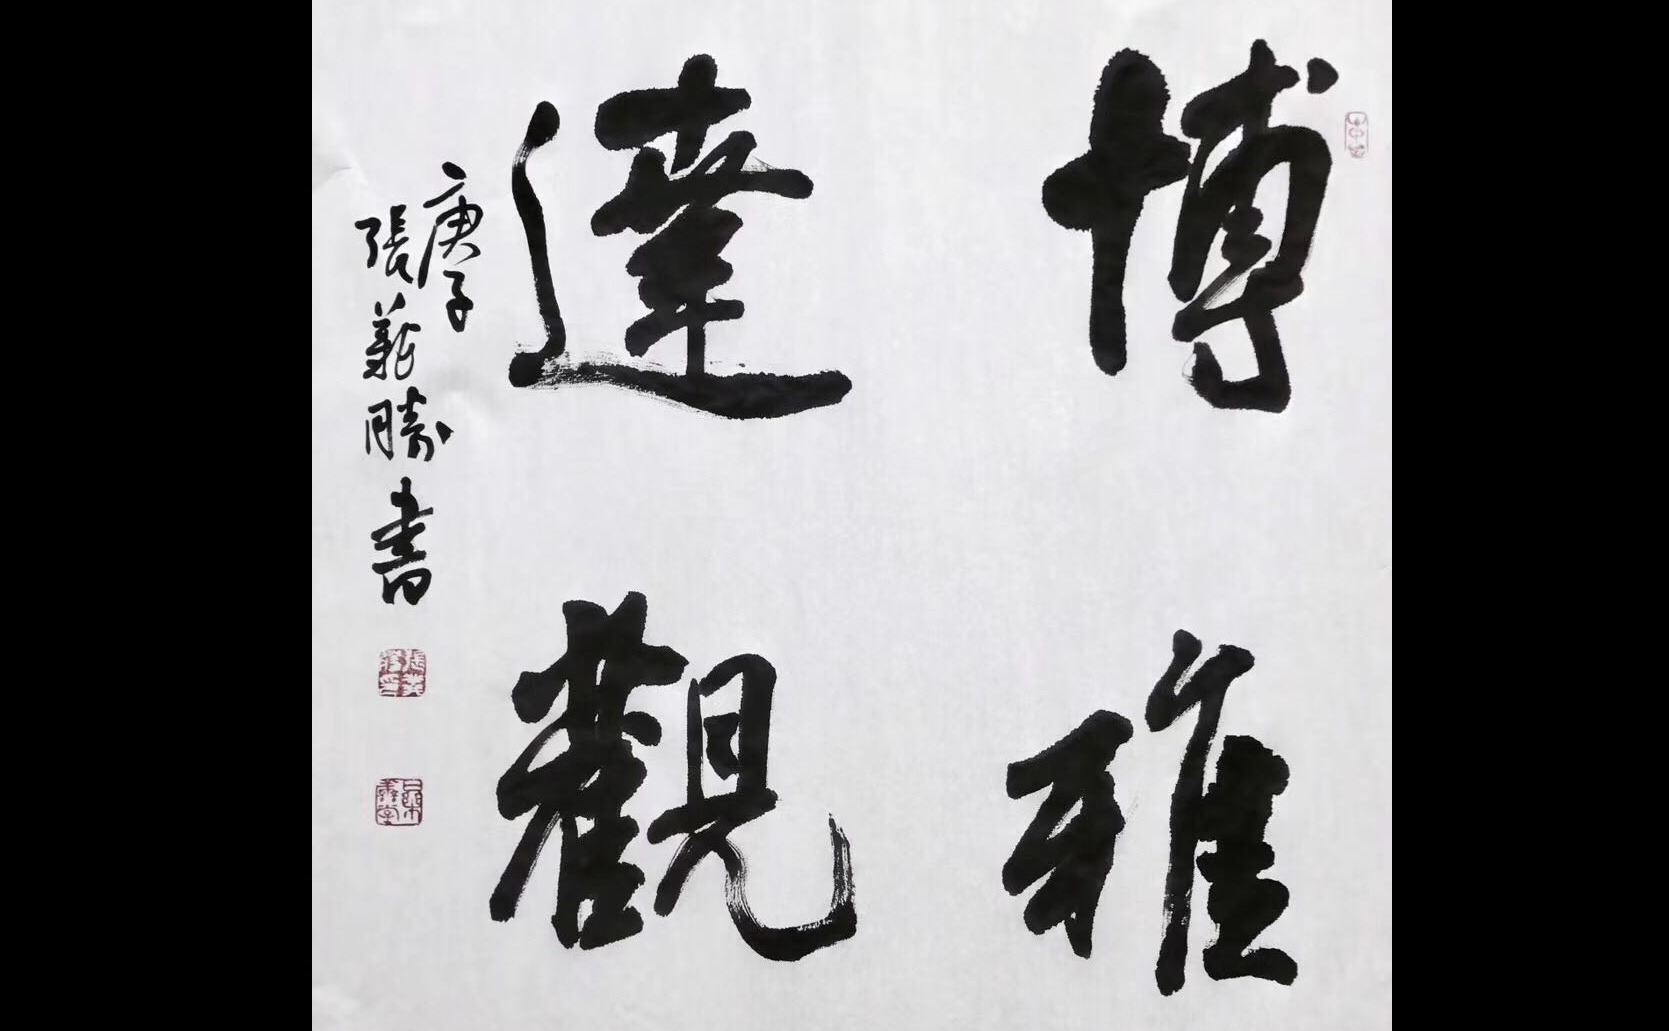 博雅
達觀
庚子
張義勝書